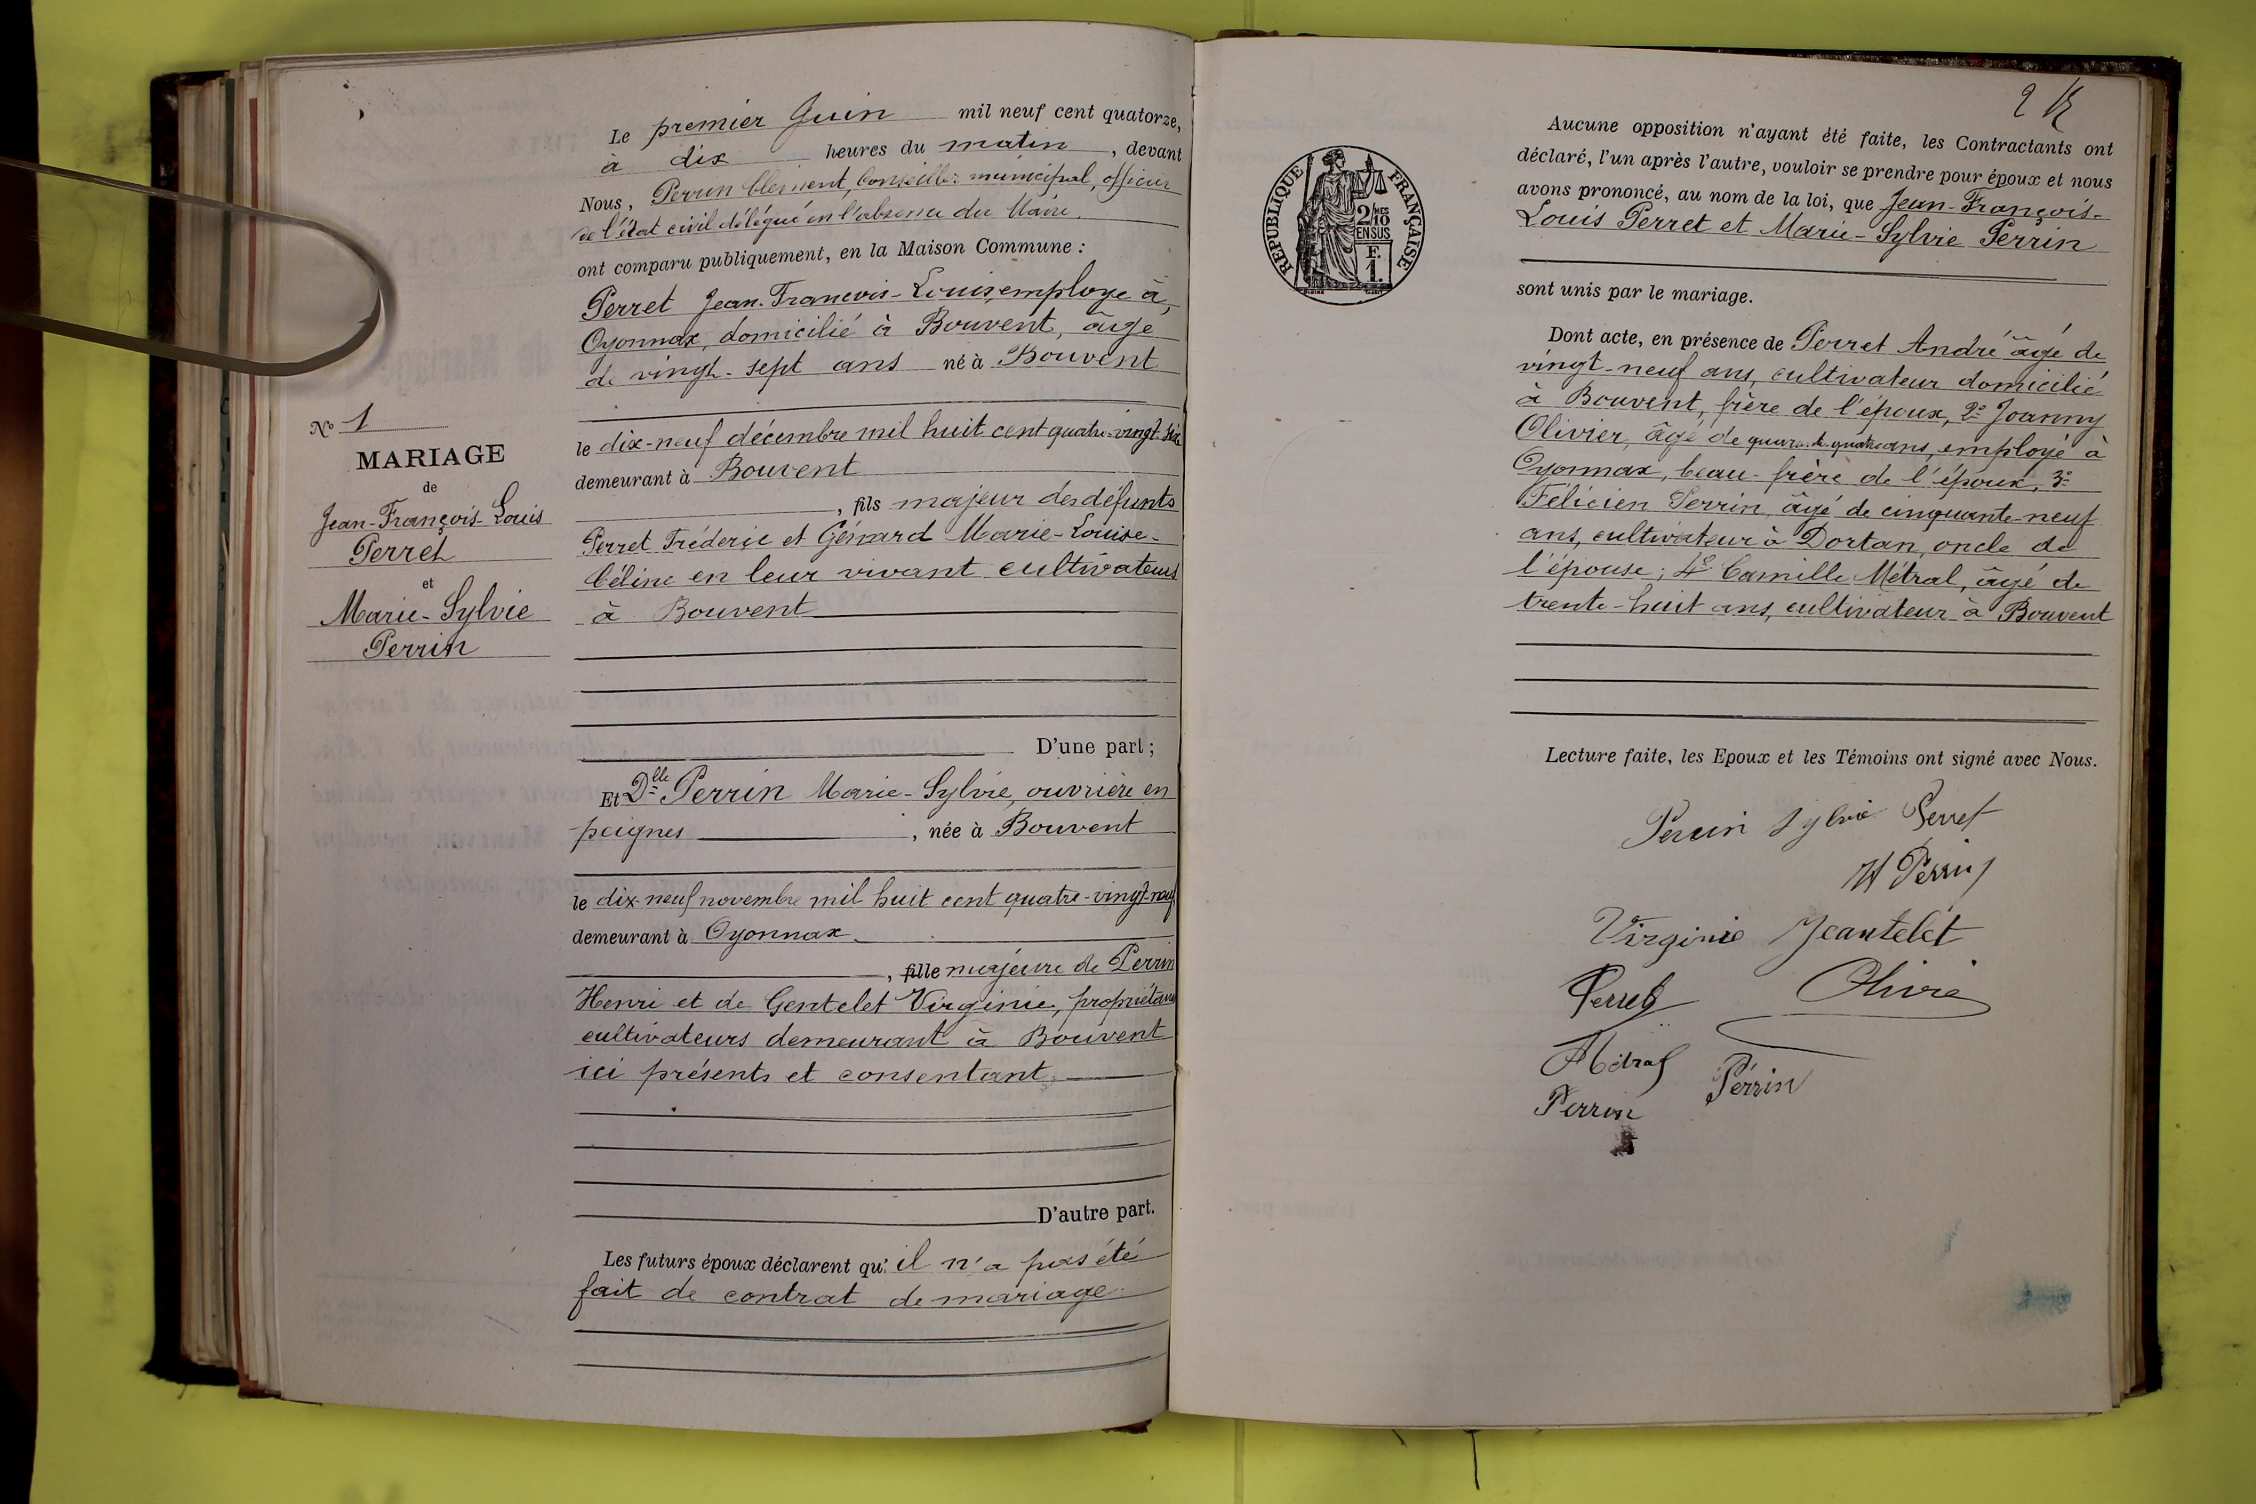 Le premier Juin mil neuf cent quatorze,
à dix heures du matin, devant
Nous, Perrin Clement, Conseiller municipal, officier
de l'état civil délégué en l'absence du Maire
ont comparu publiquement, en la Maison Commune :
Perret Jean-Francois-Louis, employe à
Oyonnax, domicilié à Bouvent, âge
de vingt-sept ans né à Bouvent
le dix-neuf décembre mil huit cent quatre-vingt-six
demeurant à Bouvent
, fils majeur des défunts
Perret Fréderic et Marie-Louise-
Céline en leur vivant cultivateurs
à Bouvent
D'une part ;
Et Dlle Perrin Marie-Sylvie, ouvrière en
peignes, née à Bouvent
le dix-neuf novembre mil huit cent quatre-vingt-neuf
demeurant à Oyonnax
, fille majeure de Perrin
Henri et de Gentelet Virginie, propriétaires
cultivateurs demeurant à Bouvent
ici présents et consentant
D'autre part.
Les futurs époux déclarent qu'il n'a pas été
fait de contrat de mariage
No 1
MARIAGE
de
Jean-François-Louis
Perret
et
Marie-Sylvie
Perrin
2
REPUBLIQUE FRANÇAISE
2/10 MES
EN SUS
F.
1.
Aucune opposition n'ayant été faite, les Contractants ont
déclaré, l'un après l'autre, vouloir se prendre pour époux et nous
avons prononcé, au nom de la loi, que Jean-François-
Louis Perret et Marie-Sylvie Perrin
sont unis par le mariage.
Dont acte, en présence de Perret André âgé de
vingt-neuf ans, cultivateur domicilié
à Bouvent, frère de l'époux, 2° Joanny
Olivier, âgé de quarante-quatre ans, employé à
Oyonnax, beau-frère de l'époux, 3°
Félicien Perrin, âgé de cinquante-neuf
ans, cultivateur à Dortan, oncle de
l'épouse ; 4° Camille Métral, âgé de
trente-huit ans, cultivateur à Bouvent
Lecture faite, les Epoux et les Témoins ont signé avec Nous.
Perrin Sylvie Perret
H Perrin
Virginie Jeantelet
Perret Olivier
Métral
Perrin Perrin